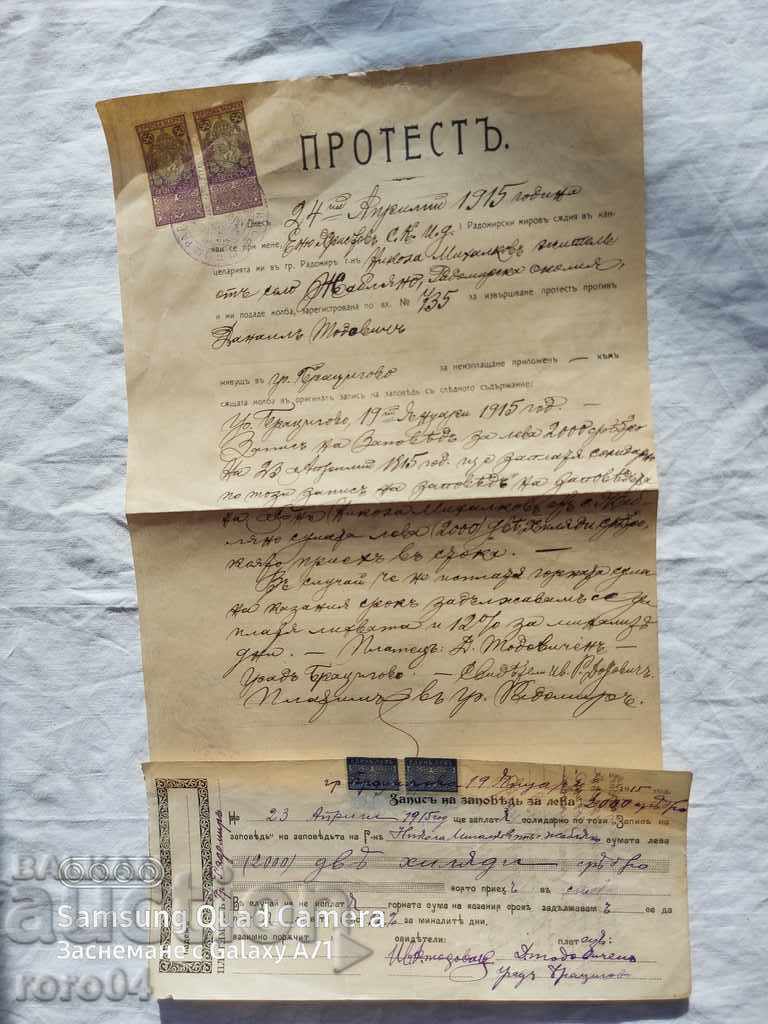 ПРОТЕСТЪ.
Днесъ 24 Априлий 1915 година
яви се при мене, С. К. И. д. Радомирски мирови сѫдия въ кан-
целарията ми въ гр. Радомиръ г-нъ Никола Михалковъ жителъ
отъ село Жабляно, Радомирска околия,
и ми подаде молба, зарегистрована по вх. № 735 за извършване протестъ противъ
Даниилъ Тодовичъ
живущъ въ гр. Брацигово за неизплащане приложен — къмъ
сѫщата молба въ оригиналъ записъ на заповѣдь съ следното съдържание:
Гр. Брацигово, 19 Януарий 1915 год. —
Записъ на Заповѣдь за лева 2000 сребро
На 23 Априлий 1915 год. ще заплатя солидарно
по този записъ на заповѣдь на заповѣдьта
на Никола Михалковъ отъ с. Жаб-
ляно сумата лева (2000) двѣ хиляди сребро,
която приехъ въ срока. —
Въ случай че не исплатя горната сума
на казания срокъ задължавамъ се да
платя лихвата и 12% за миналитѣ
дни. — Платецъ: Д. Тодовиченъ —
градъ Брацигово. — Свидѣтел Ив.
Платимъ въ гр. Радомиръ.
гр. 19 Януарий 1915
Записъ на заповѣдь за лева 2000 сребро
На 23 Априлий 1915 год ще заплатя солидарно по този „Записъ на
заповѣдь" на заповѣдьта на Г-нъ Никола Михалковъ сумата лева
(2000) двѣ хиляди сребро
която приехъ въ
Въ случай че не исплатя горната сума на казания срокъ задължавамъ се да
за миналитѣ дни.
взаимно поръчит. свидѣтели: платецъ:
Д. Тодовиченъ
градъ Брацигово
ПЛАТИМЪ ВЪ гр. Радомиръ
БАЛКАН
auction
Samsung Quad Camera
Заснемане с Galaxy A71
roro04